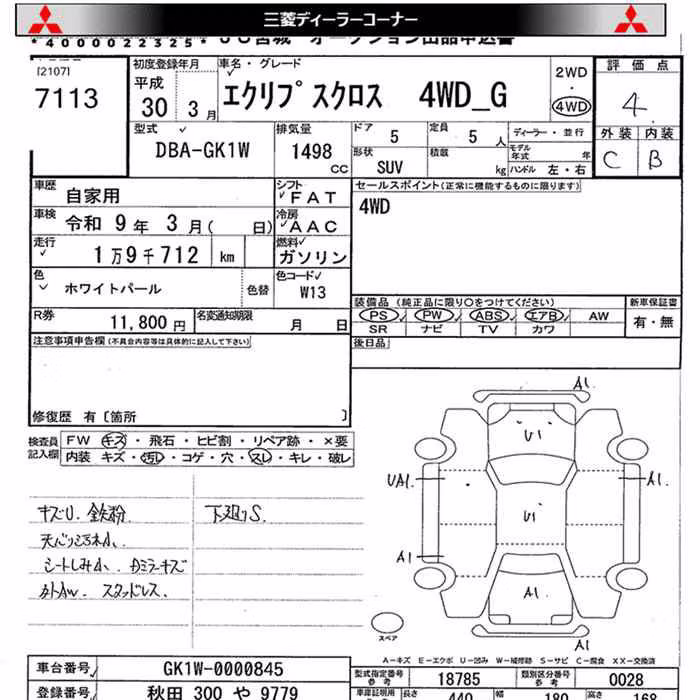 三菱ディーラーコーナー
*4000022325* JU宮城 オークション出品申込書
[2107]
7113
初度登録年月
平成
30 3 月
車名・グレード
エクリプスクロス 4WD_G
2WD
・
4WD
評価点
4
外装 内装
C B
型式
DBA-GK1W
排気量
1498
CC
ドア
5
定員
5 人
形状
SUV
積載
kg
ディーラー・並行
モデル年式 年
ハンドル 左・右
車歴
自家用
シフト
FAT
車検
令和 9 年 3 月( 日)
冷房
AAC
走行
1万9千712 km
燃料
ガソリン
色
ホワイトパール
色替
色コード
W13
R券
11,800 円
名変通知期限
月 日
セールスポイント(正常に機能するものに限ります)
4WD
装備品 (純正品に限り○をつけてください)
PS ・ PW ・ ABS ・ エアB ・ AW
SR ナビ TV カワ
新車保証書
有・無
後日品
注意事項申告欄 (不具合内容等は具体的に記入して下さい)
修復歴 有 [箇所 ]
検査員記入欄
FW キズ ・ 飛石 ・ ヒビ割 ・ リペア跡 ・ ×要
内装 キズ ・ 汚レ ・ コゲ ・ 穴 ・ スレ ・ キレ ・ 破レ
キズU. 鉄粉
下廻りS.
シートしみA、カミラーキズ
カトAw. スタッドレス.
A1.
U1
UA1.
A1.
U1
A1
A1.
A1
スペア
A－キズ E－エクボ U－凹み W－補修跡 S－サビ C－腐食 XX－交換済
車台番号
GK1W-0000845
登録番号
秋田 300 や 9779
型式指定番号
参考
18785
類別区分番号
参考
0028
車庫証明用
長さ
440
幅
180
高さ
168